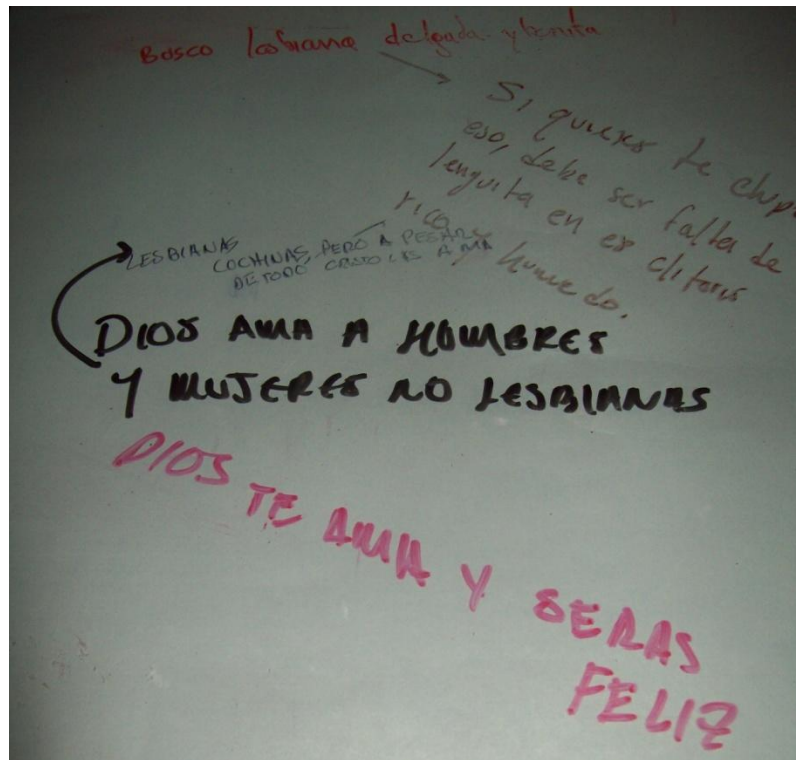 Busco lesbiana delgada y bonita
Si quieres te chupo
eso, debe ser falta de
lenguita en er clitoris
rico y humedo.
LESBIANAS
COCHINAS, PERO A PESAR
DE TODO CRISTO LAS AMA
DIOS AMA A HOMBRES
Y MUJERES NO LESBIANAS
DIOS TE AMA Y SERAS
FELIZ